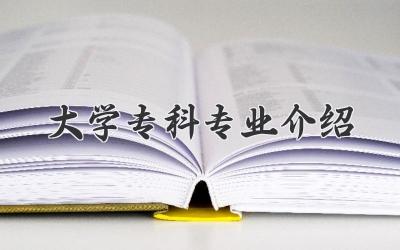 大学专科专业介绍